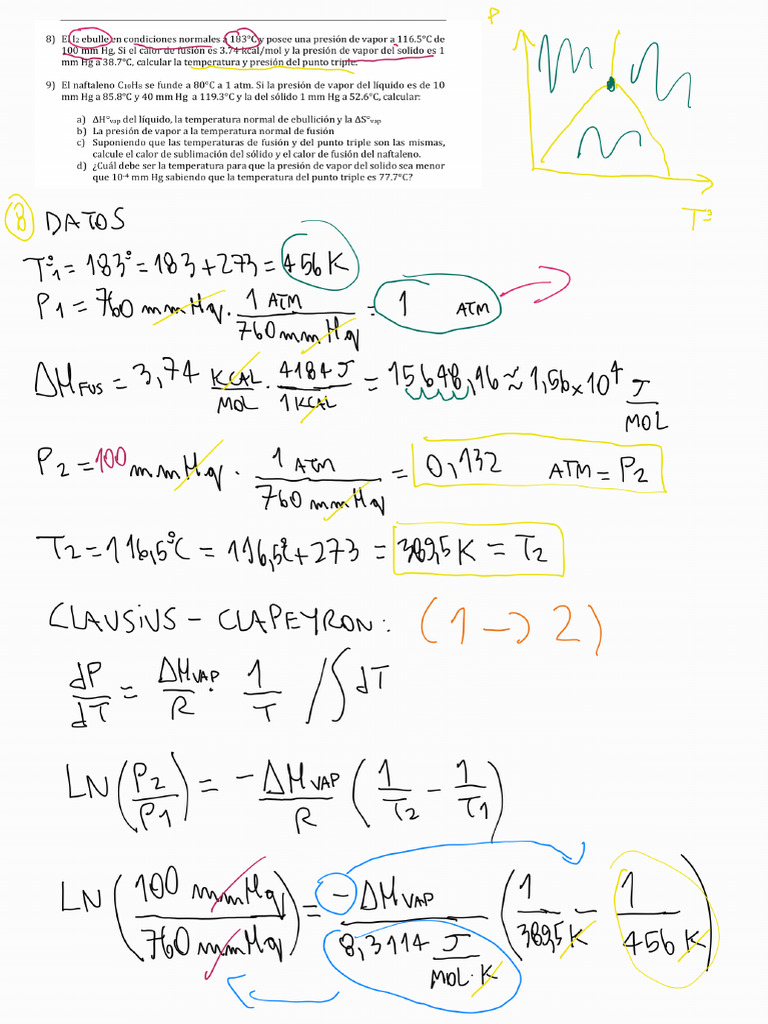 8) El I₂ ebulle en condiciones normales a 183°C y posee una presión de vapor a 116.5°C de
100 mm Hg. Si el calor de fusión es 3.74 kcal/mol y la presión de vapor del solido es 1
mm Hg a 38.7°C, calcular la temperatura y presión del punto triple.
9) El naftaleno C₁₀H₈ se funde a 80°C a 1 atm. Si la presión de vapor del líquido es de 10
mm Hg a 85.8°C y 40 mm Hg a 119.3°C y la del sólido 1 mm Hg a 52.6°C, calcular:
a) ΔH°vap del líquido, la temperatura normal de ebullición y la ΔS°vap
b) La presión de vapor a la temperatura normal de fusión
c) Suponiendo que las temperaturas de fusión y del punto triple son las mismas,
calcule el calor de sublimación del sólido y el calor de fusión del naftaleno.
d) ¿Cuál debe ser la temperatura para que la presión de vapor del solido sea menor
que 10⁻⁴ mm Hg sabiendo que la temperatura del punto triple es 77.7°C?
P
T°
8 DATOS
T°₁ = 183° = 183 + 273 = 456 K
P1 = 760 mmHg · 1 ATM / 760 mmHg = 1 ATM
ΔH FUS = 3,74 KCAL/MOL · 4184 J / 1 KCAL = 15648,16 ≈ 1,56 x 10⁴ J/MOL
P2 = 100 mmHg · 1 ATM / 760 mmHg = 0,132 ATM = P2
T2 = 116,5°C = 116,5° + 273 = 389,5 K = T2
CLAUSIUS - CLAPEYRON: (1 -> 2)
dP/dT = ΔH VAP / R · 1/T /∫ dT
LN (P2/P1) = -ΔH VAP / R (1/T2 - 1/T1)
LN (100 mmHg / 760 mmHg) = -ΔH VAP / 8,3114 J/MOL·K (1/389,5 K - 1/456 K)